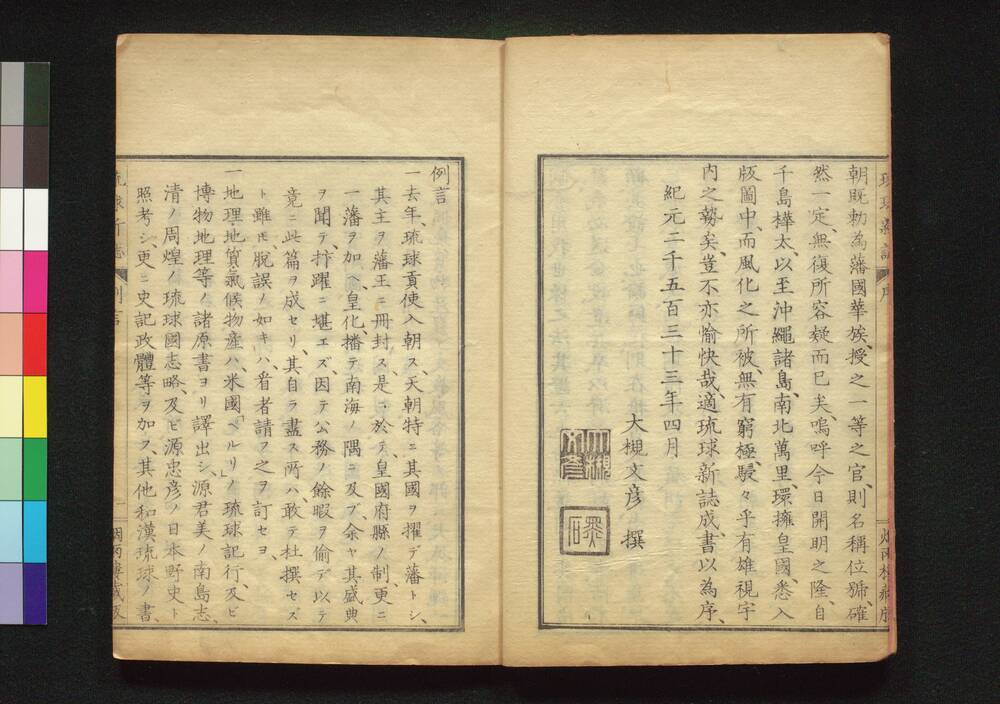 朝既勅為藩國華族、授之一等之官、則名稱位號確
然一定、無復所容疑而已矣、嗚呼今日開明之隆、自
千島樺太、以至沖繩諸島、南北萬里、環擁皇國、悉入
版圖中、而風化之所被、無有窮極、駸々乎有雄視宇
内之勢矣、豈不亦愉快哉、適琉球新誌成書以為序、
紀元二千五百三十三年四月
大槻文彦 撰
例言
一去年、琉球貢使入朝ス、天朝特ニ其國ヲ擢デ藩トシ、
其主ヲ藩王ニ冊封ス、是ニ於テ、皇國府縣ノ制、更ニ
一藩ヲ加ヘ、皇化、播テ南海ノ隅ニ及ブ、余ヤ其盛典
ヲ聞テ、抃躍ニ堪エズ、因テ公務ノ餘暇ヲ偷デ、以テ
竟ニ此篇ヲ成セリ、其自ラ盡ス所ハ、敢テ杜撰セズ
ト雖ドモ、脫誤ノ如キハ、看者請フ之ヲ訂セヨ、
一地理地質氣候物産ハ、米國「ペルリ」ノ琉球記行、及ビ
博物地理等ノ諸原書ヨリ譯出シ、源君美ノ南島志、
清ノ周煌ノ琉球國志略、及ビ源忠彦ノ日本野史ト
照考シ、更ニ史記政體等ヲ加ス、其他和漢琉球ノ書、
琉球新誌 例言